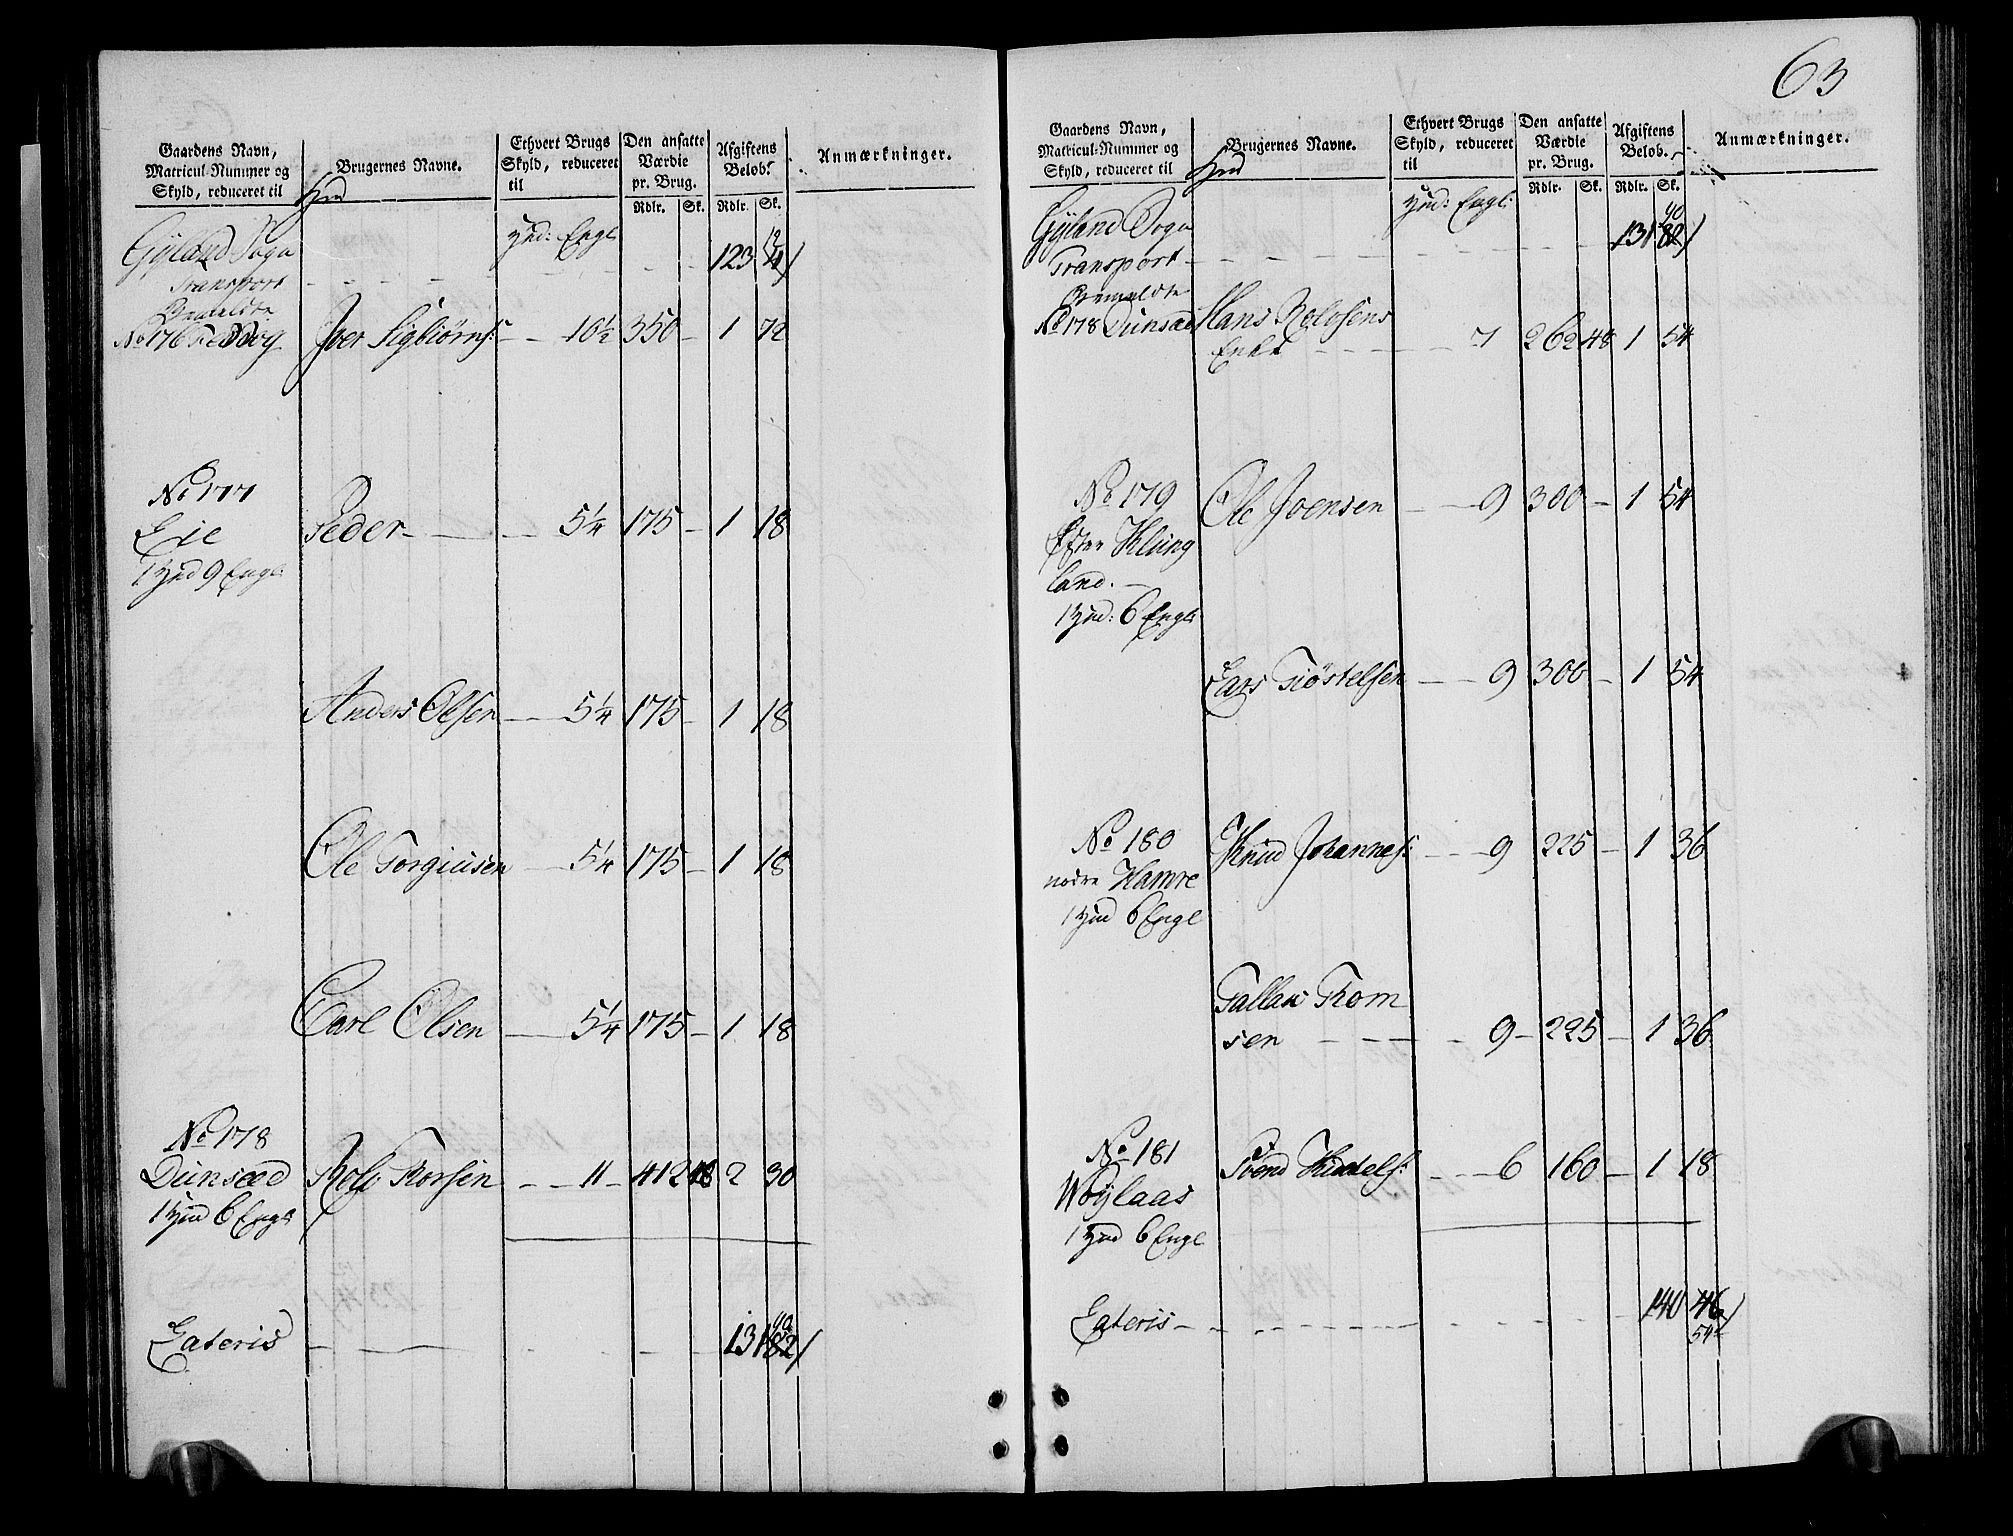 63
Gaardens Navn,
Matricul-Nummer og
Skyld, reduceret til
Brugernes Navne.
Ethvert Brugs
Skyld, reduceret
til
Den ansatte
Værdie
pr. Brug.
Rdlr. Sk.
Afgiftens
Beløb.
Rdlr. Sk.
Anmærkninger.
Hud
Hud: Engl
Gyland Sogn
Transport - - - - 123
No 176 Iver Sigbiørns: - - 10½ 350 - 1 72
No 177
Eie Peder - - - 5¼ 175 - 1 18
1 Hud 9 Engl:
Anders Olsen - - 5¼ 175 - 1 18
Ole Torgiusen - 5¼ 175 - 1 18
Carl Olsen - 5¼ 175 - 1 18
No 178
Dunsæd Rolv Torsen - - 11 - 412 48 2 30
1 Hud 6 Engl:
Lateris - - - - 131 82
40
Gaardens Navn,
Matricul-Nummer og
Skyld, reduceret til
Brugernes Navne.
Ethvert Brugs
Skyld, reduceret
til
Den ansatte
Værdie
pr. Brug.
Rdlr. Sk.
Afgiftens
Beløb.
Rdlr. Sk.
Anmærkninger.
Hud
Hud: Engl:
40
Gyland Sogn
Transport - - - - 131 82
No 178 Dunsæd Hans Rolvsens
Enke - - - 7 262 48 1 54
No 179 Ole Joensen - - 9 300 - 1 54
Efter Klung
land. -
1 Hud: 6 Engl:
Lars Tiøstelsen - - 9 300 - 1 54
No 180 Knud Johannes: - - 9 225 - 1 36
nodre Hamre
1 Hud 6 Engl
Tallaw Thom
sen - - - 9 - 225 - 1 36
No 181 Svend Kittels: - - 6 160 - 1 18
Woylaas
1 Hud 6 Engl
Lateris - - - - 140 46
54